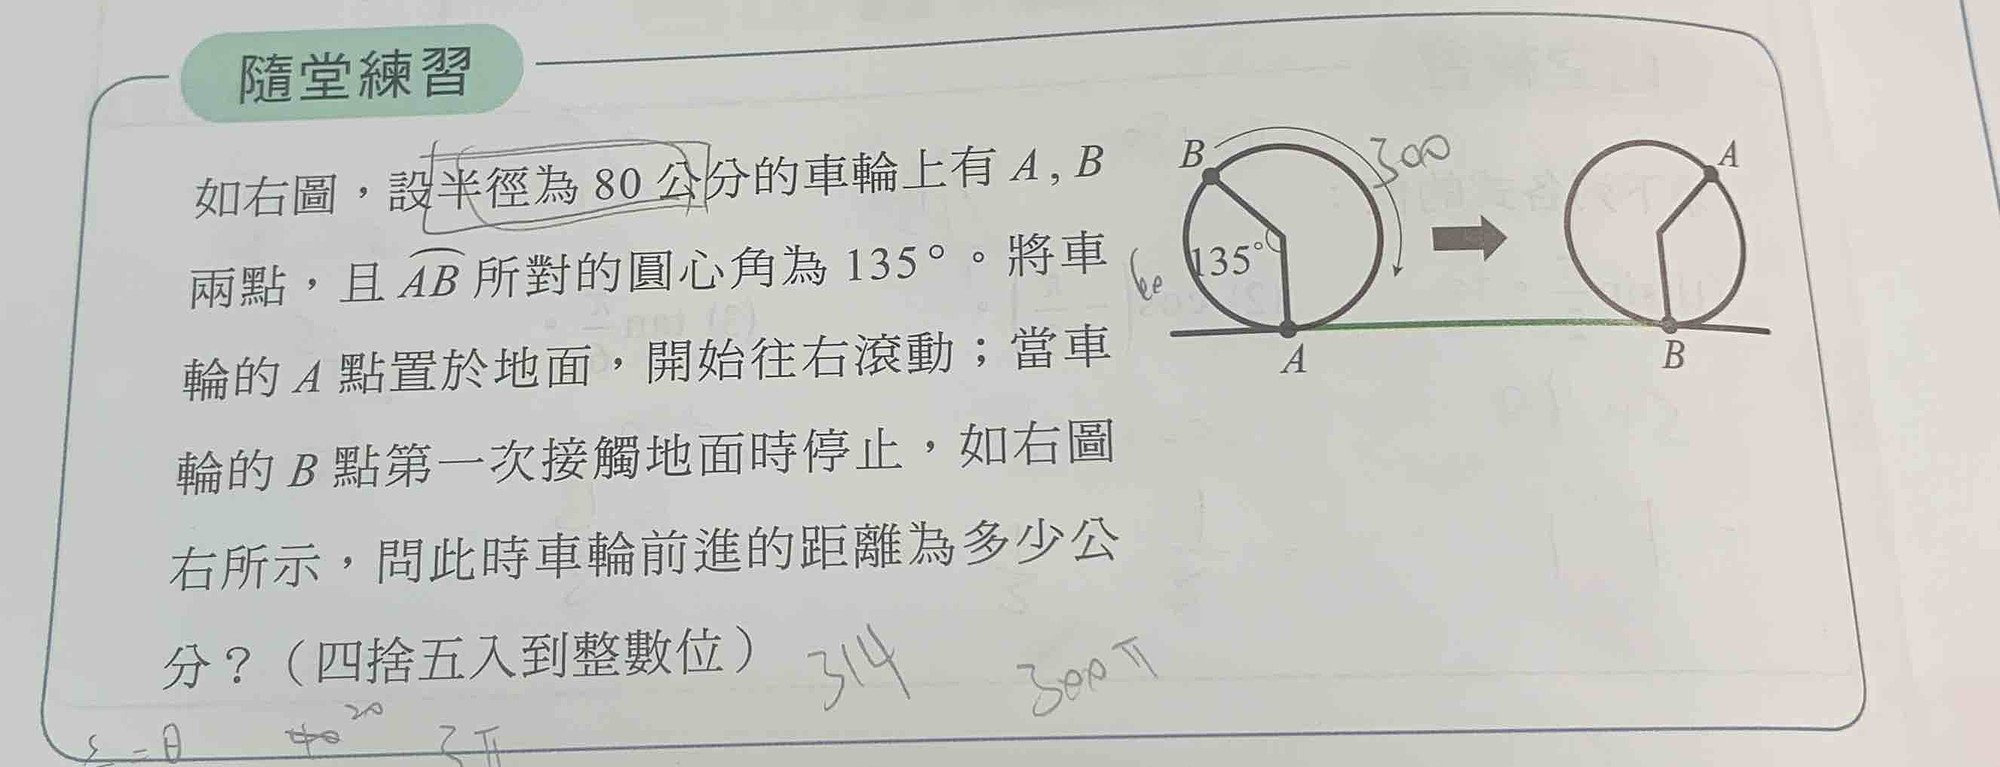 隨堂練習
如右圖，設半徑為 80 公分的車輪上有 A , B
兩點，且 AB 所對的圓心角為 135°。將車
輪的 A 點置於地面，開始往右滾動；當車
輪的 B 點第一次接觸地面時停止，如右圖
右所示，問此時車輪前進的距離為多少公
分？（四捨五入到整數位）
B
300
135°
A
A
B
314
300π
= θ
20